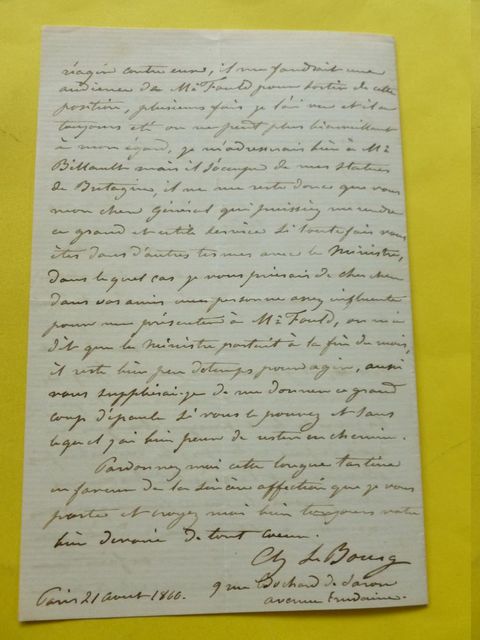 réagir contre eux, il me faudrait une
audience de Mr Fould pour sortir de cette
position, plusieurs fois je l'ai vu et il a
toujours été on ne peut plus bienveillant
à mon égard, je m'adresserais bien à Mr
Billault mais il s'occupe de mes statues
de Bretagne, il ne me reste donc que vous
mon cher Général qui puissiez me rendre
ce grand et utile service si toute fois vous
êtes dans d'autres termes avec le Ministre,
dans lequel cas je vous prierais de chercher
dans vos amis une personne assez influente
pour me présenter à Mr Fould, on m'a
dit que le Ministre partait à la fin du mois,
il reste bien peu de temps pour agir, aussi
vous supplierai-je de me donner ce grand
coup d'épaule si vous le pouvez et sans
lequel j'ai bien peur de rester en chemin.
Pardonnez moi cette longue tartine
en faveur de la sincère affection que je vous
porte et croyez moi bien toujours votre
bien dévoué de tout coeur.
Ch Le Bourg
9 rue Bochard de Saron
Paris 21 aout 1860. avenue Trudaine.